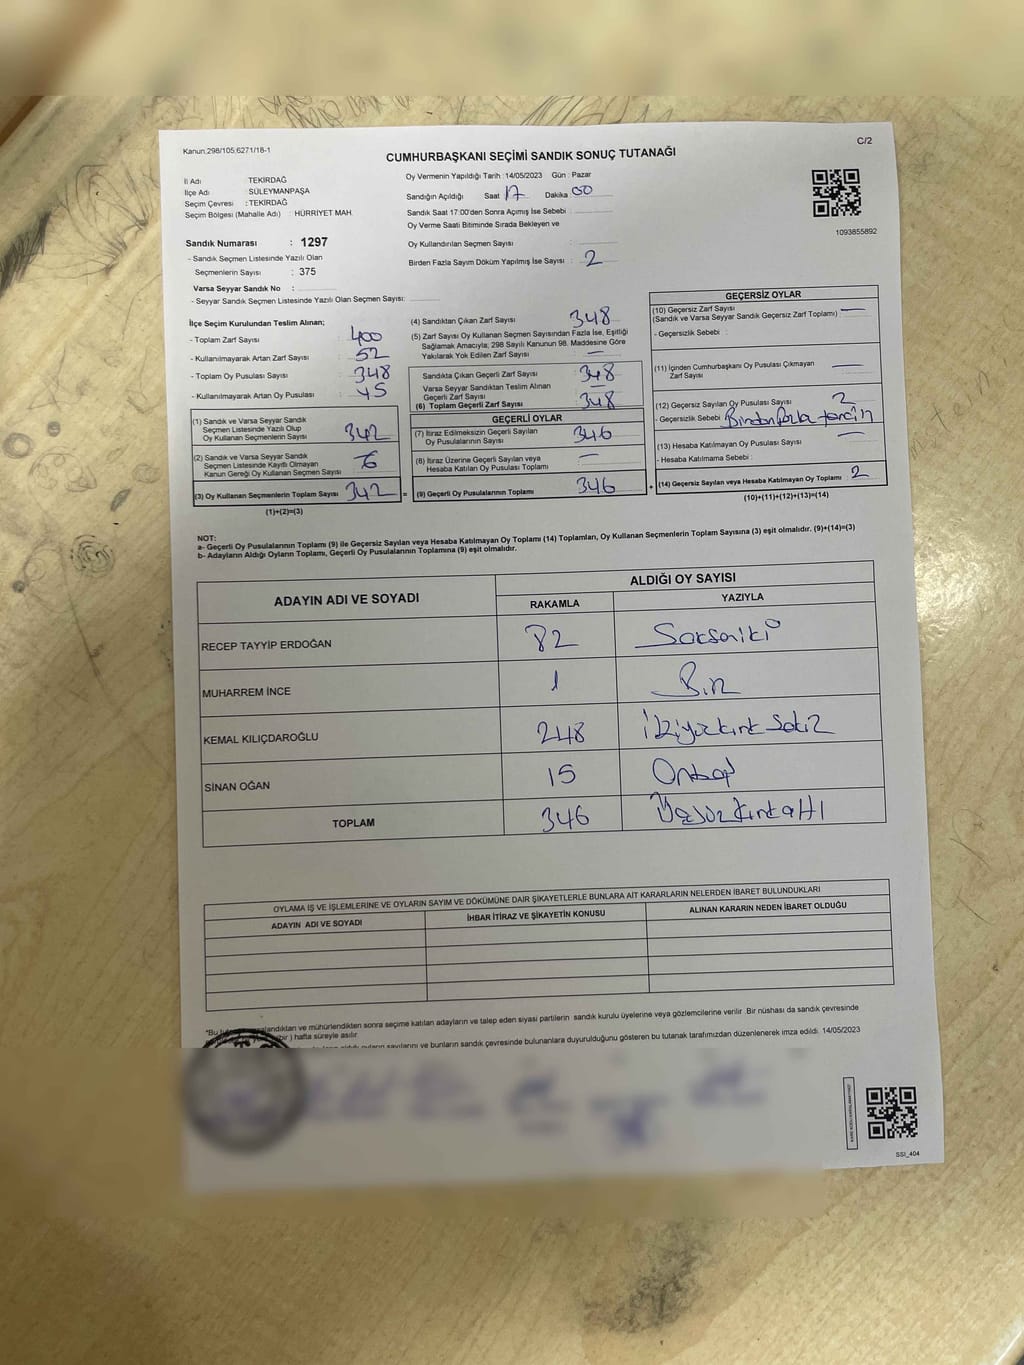 Kanun.298/105;6271/18-1
C/2
CUMHURBAŞKANI SEÇİMİ SANDIK SONUÇ TUTANAĞI
İl Adı : TEKİRDAĞ
İlçe Adı : SÜLEYMANPAŞA
Seçim Çevresi : TEKİRDAĞ
Seçim Bölgesi (Mahalle Adı) : HÜRRİYET MAH.
Sandık Numarası : 1297
- Sandık Seçmen Listesinde Yazılı Olan
Seçmenlerin Sayısı : 375
Varsa Seyyar Sandık No :
- Seyyar Sandık Seçmen Listesinde Yazılı Olan Seçmen Sayısı:
Oy Vermenin Yapıldığı Tarih : 14/05/2023 Gün : Pazar
Sandığın Açıldığı Saat 17 Dakika 00
Sandık Saat 17:00'den Sonra Açımış İse Sebebi :
Oy Verme Saati Bitiminde Sırada Bekleyen ve
Oy Kullandırılan Seçmen Sayısı :
Birden Fazla Sayım Döküm Yapılmış İse Sayısı : 2
1093855892
İlçe Seçim Kurulundan Teslim Alınan;
- Toplam Zarf Sayısı : 400
- Kullanılmayarak Artan Zarf Sayısı : 52
- Toplam Oy Pusulası Sayısı : 348
- Kullanılmayarak Artan Oy Pusulası : 45
(1) Sandık ve Varsa Seyyar Sandık
Seçmen Listesinde Yazılı Olup
Oy Kullanan Seçmenlerin Sayısı 342
(2) Sandık ve Varsa Seyyar Sandık
Seçmen Listesinde Kayıtlı Olmayan
Kanun Gereği Oy Kullanan Seçmen Sayısı 6
(3) Oy Kullanan Seçmenlerin Toplam Sayısı 342 =
(1)+(2)=(3)
(4) Sandıktan Çıkan Zarf Sayısı : 348
(5) Zarf Sayısı Oy Kullanan Seçmen Sayısından Fazla İse, Eşitliği
Sağlamak Amacıyla; 298 Sayılı Kanunun 98. Maddesine Göre
Yakılarak Yok Edilen Zarf Sayısı : —
Sandıkta Çıkan Geçerli Zarf Sayısı : 348
Varsa Seyyar Sandıktan Teslim Alınan
Geçerli Zarf Sayısı
(6) Toplam Geçerli Zarf Sayısı : 348
GEÇERLİ OYLAR
(7) İtiraz Edilmeksizin Geçerli Sayılan
Oy Pusulalarının Sayısı : 346
(8) İtiraz Üzerine Geçerli Sayılan veya
Hesaba Katılan Oy Pusulası Toplamı : —
(9) Geçerli Oy Pusulalarının Toplamı : 346 +
GEÇERSİZ OYLAR
(10) Geçersiz Zarf Sayısı
(Sandık ve Varsa Seyyar Sandık Geçersiz Zarf Toplamı) : —
- Geçersizlik Sebebi :
(11) İçinden Cumhurbaşkanı Oy Pusulası Çıkmayan
Zarf Sayısı : —
(12) Geçersiz Sayılan Oy Pusulası Sayısı : 2
- Geçersizlik Sebebi : Birden fazla tercih
(13) Hesaba Katılmayan Oy Pusulası Sayısı : —
- Hesaba Katılmama Sebebi :
(14) Geçersiz Sayılan veya Hesaba Katılmayan Oy Toplamı : 2
(10)+(11)+(12)+(13)=(14)
NOT:
a- Geçerli Oy Pusulalarının Toplamı (9) ile Geçersiz Sayılan veya Hesaba Katılmayan Oy Toplamı (14) Toplamları, Oy Kullanan Seçmenlerin Toplam Sayısına (3) eşit olmalıdır. (9)+(14)=(3)
b- Adayların Aldığı Oyların Toplamı, Geçerli Oy Pusulalarının Toplamına (9) eşit olmalıdır.
ADAYIN ADI VE SOYADI ALDIĞI OY SAYISI
RAKAMLA YAZIYLA
RECEP TAYYİP ERDOĞAN 82 Sekseniki
MUHARREM İNCE 1 Bir
KEMAL KILIÇDAROĞLU 248 İkiyüzkırk Sekiz
SİNAN OĞAN 15 Onbeş
TOPLAM 346 Üçyüzkırkaltı
OYLAMA İŞ VE İŞLEMLERİNE VE OYLARIN SAYIM VE DÖKÜMÜNE DAİR ŞİKAYETLERLE BUNLARA AİT KARARLARIN NELERDEN İBARET BULUNDUKLARI
ADAYIN ADI VE SOYADI İHBAR İTİRAZ VE ŞİKAYETİN KONUSU ALINAN KARARIN NEDEN İBARET OLDUĞU
*Bu mühürlendikten sonra seçime katılan adayların ve talep eden siyasi partilerin sandık kurulu üyelerine veya gözlemcilerine verilir. Bir nüshası da sandık çevresinde
hafta süreyle asılır.
oyların sayılarını ve bunların sandık çevresinde bulunanlara duyurulduğunu gösteren bu tutanak tarafımızdan düzenlenerek imza edildi. 14/05/2023
SSI_404